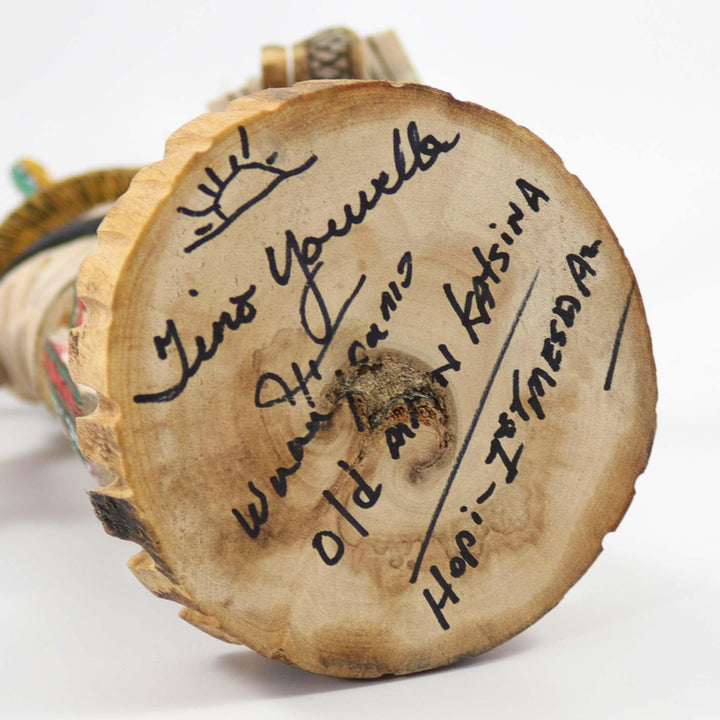 Tino Youvella
Old MAN KATSINA
Hopi-1ST MESA AZ